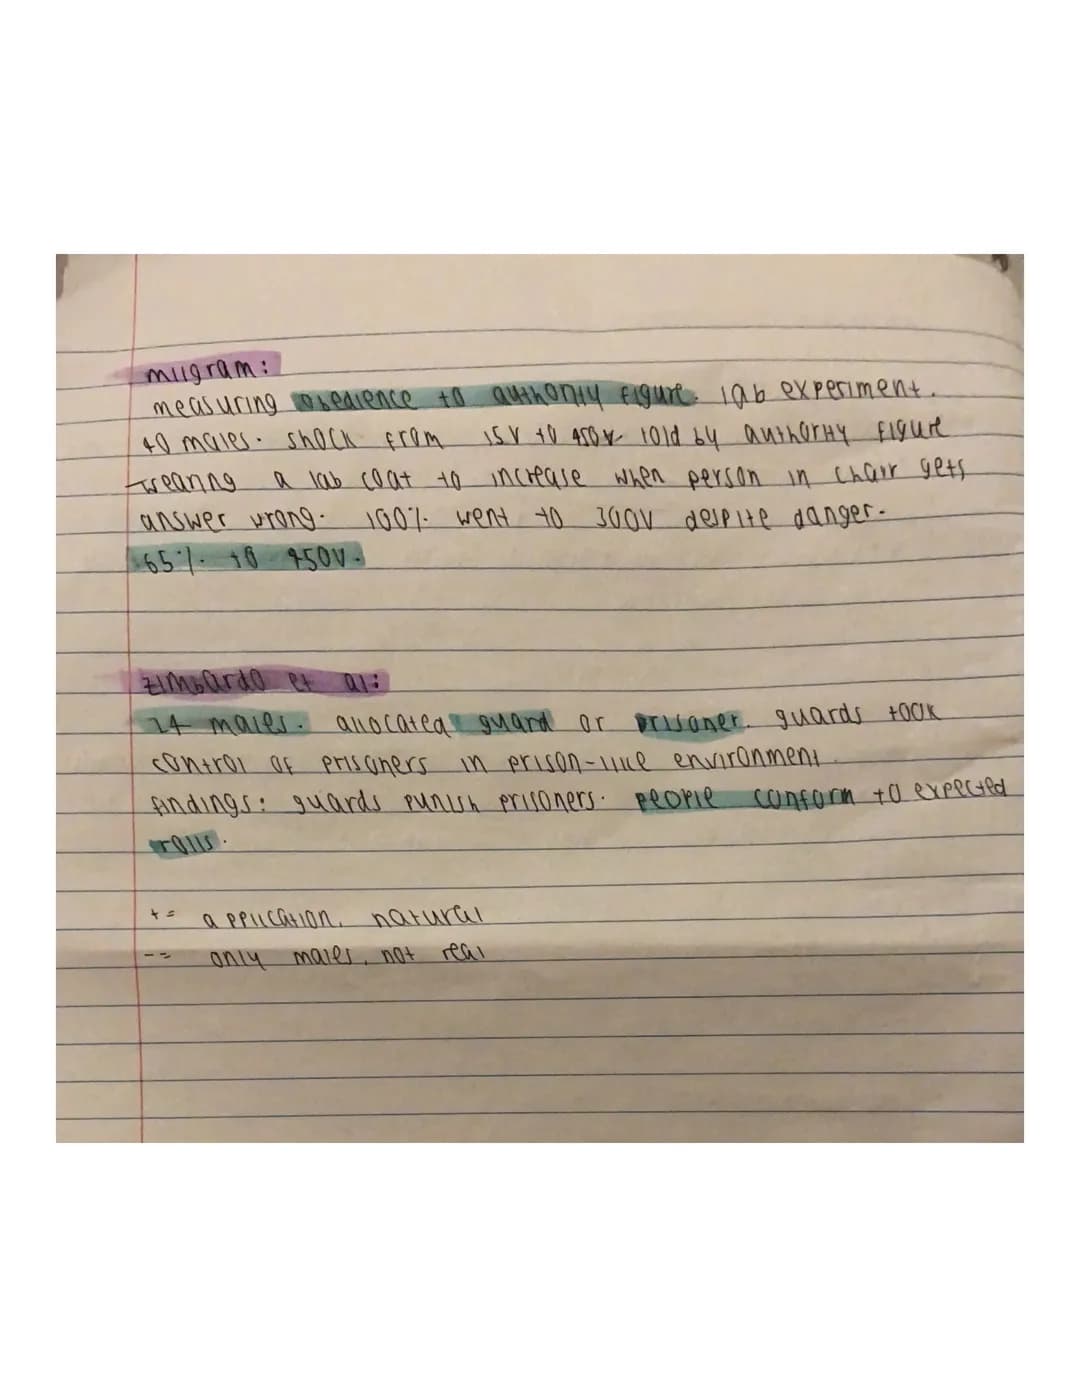 milgram:
measuring obedience to authority figure. lab experiment.
40 males. shock from 15V to 450V. told by authority figure
wearing a lab coat to increase when person in chair gets
answer wrong. 100% went to 300V despite danger.
65% to 450V.
zimbardo et al:
24 males. allocated guard or prisoner. guards took
control of prisoners in prison-like environment.
findings: guards punish prisoners. people conform to expected
rolls.
+= application, natural
-= only males, not real